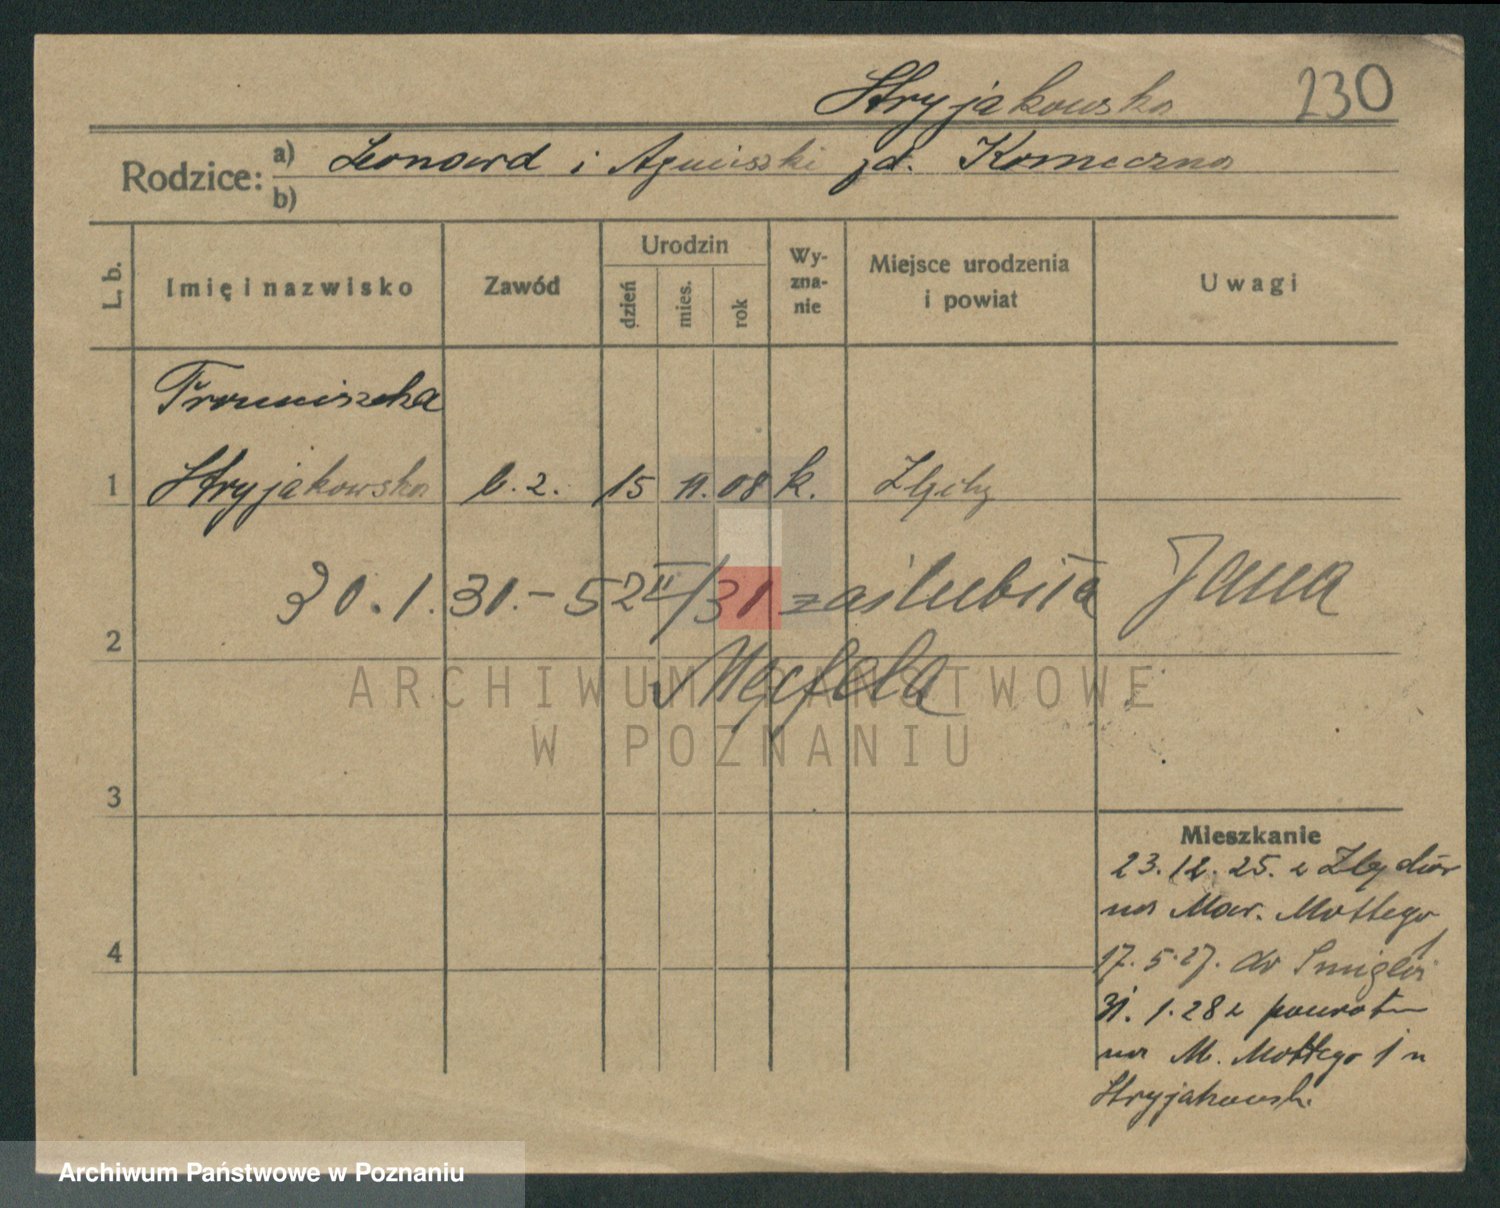 Stryjakowska 230
Rodzice: a) Leonard i Agnieszki zd. Konieczna
b)
L. b. Imię i nazwisko Zawód Urodzin dzień mies. rok Wyznanie Miejsce urodzenia i powiat Uwagi
Franciszka
1 Stryjakowska b. z. 15 11. 08 k.
30.1.31. – 52 II/31 zaślubiła Jana
2
ARCHIWUM PAŃSTWOWE
W POZNANIU
3
Mieszkanie
23. 12. 25. z
na Mar. Mottego
4
17. 5. 27. do Śmigla
31. 1. 28 z powrotem
na M. Mottego 1 u
Stryjakowsk.
Archiwum Państwowe w Poznaniu